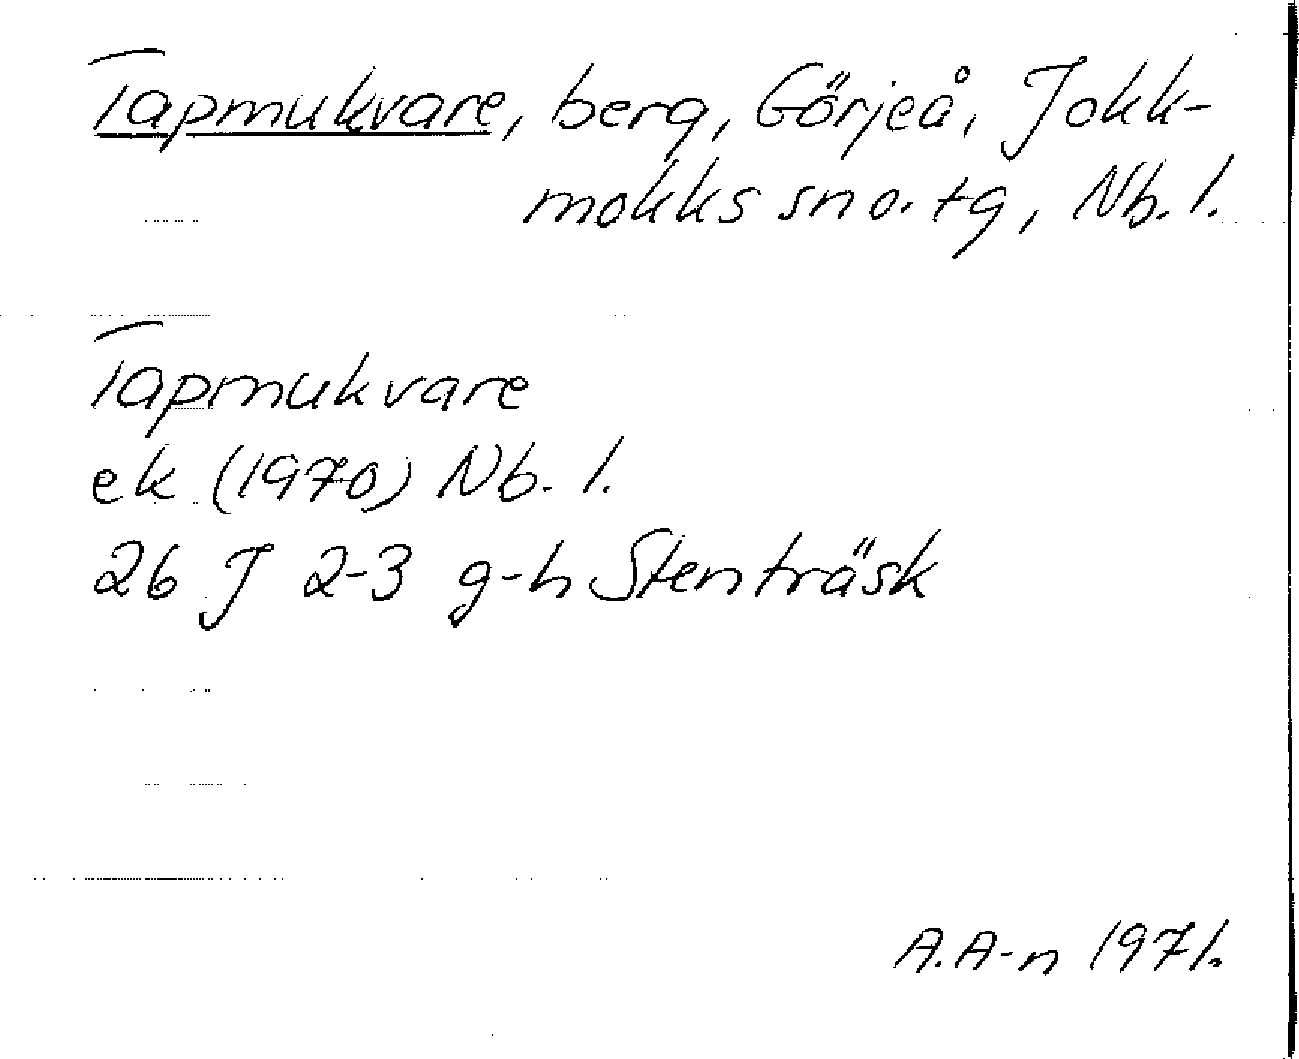 Tapmukvare, berg, Görjeå, Jokk-
mokks sn o. tg, Nb. l.
Tapmukvare
ek (1970) Nb. l.
26 J 2-3 g-h Stenträsk
A. A-n 1971.